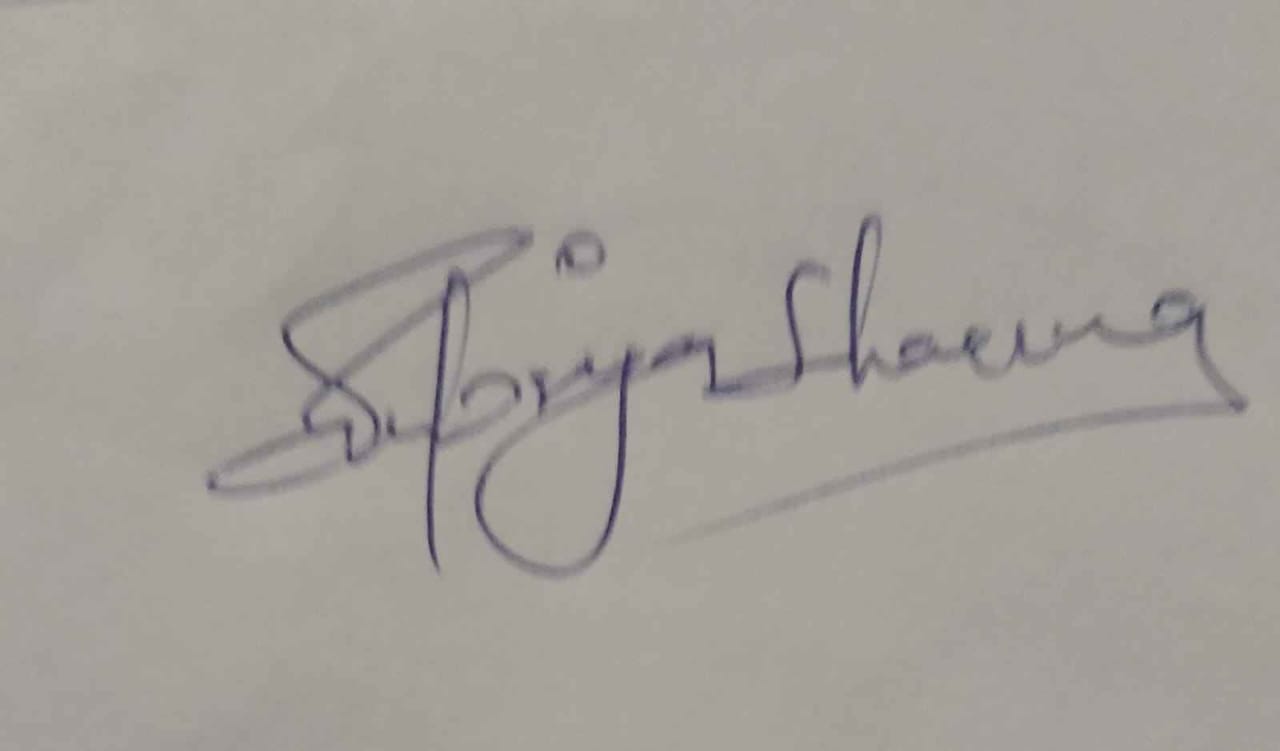 Supriya Sharma